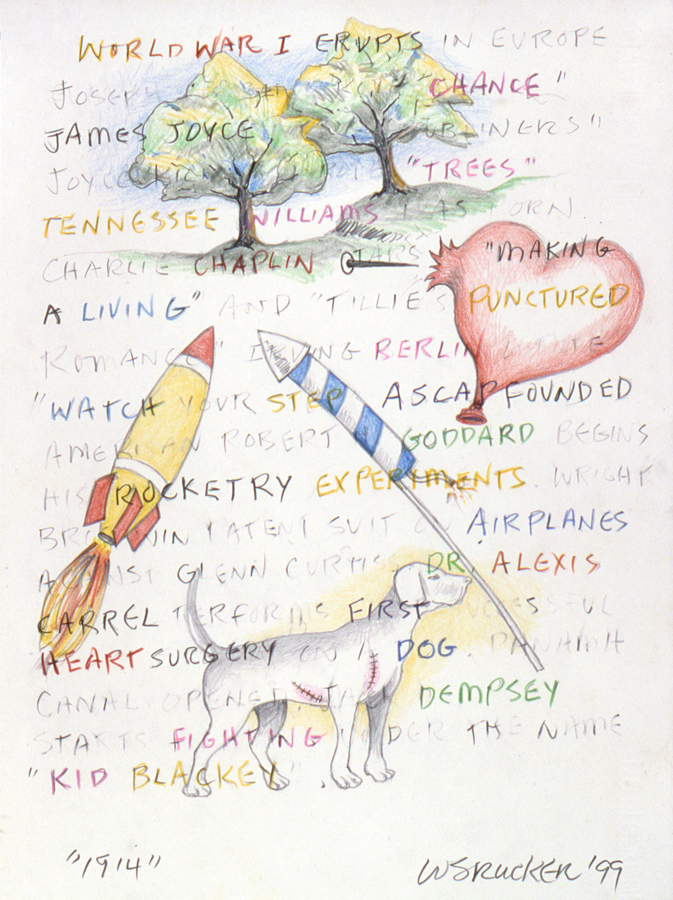 WORLD WAR I ERUPTS IN EUROPE
JOSEPH "CHANCE"
JAMES JOYCE
JOYCE "TREES"
TENNESSEE WILLIAMS WAS BORN.
CHARLIE CHAPLIN STARS "MAKING
A LIVING" AND "TILLIE'S PUNCTURED
ROMANCE" IRVING BERLIN WROTE
"WATCH YOUR STEP ASCAP FOUNDED
AMERICAN ROBERT GODDARD BEGINS
HIS ROCKETRY EXPERIMENTS. WRIGHT
WIN PATENT SUIT ON AIRPLANES
AGAINST GLENN CURTIS. DR. ALEXIS
CARREL PERFORMS FIRST SUCCESSFUL
HEART SURGERY ON A DOG. PANAMA
CANAL OPENED. JACK DEMPSEY
STARTS FIGHTING UNDER THE NAME
"KID BLACKEY".
"1914" WSRUCKER '99